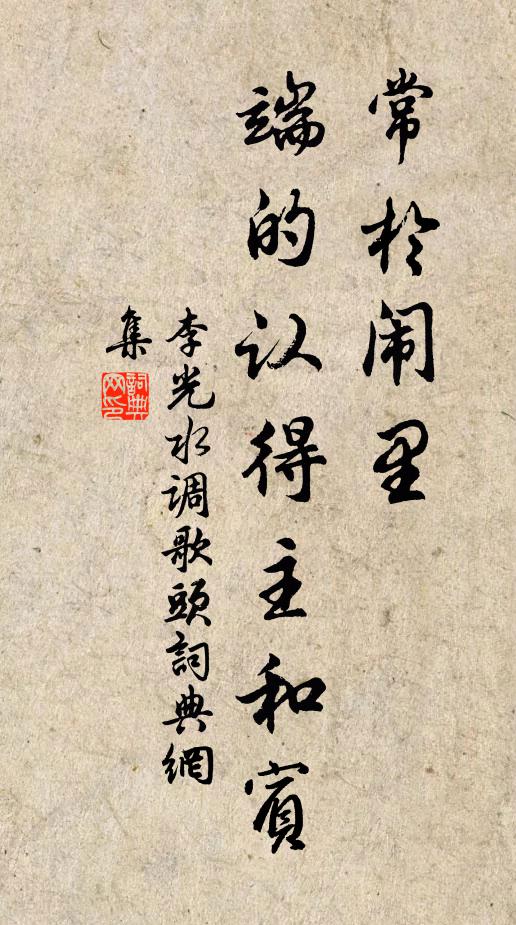 常於闹里
端的认得主和賓
李光水调歌頭詞典網
集
詞典网印